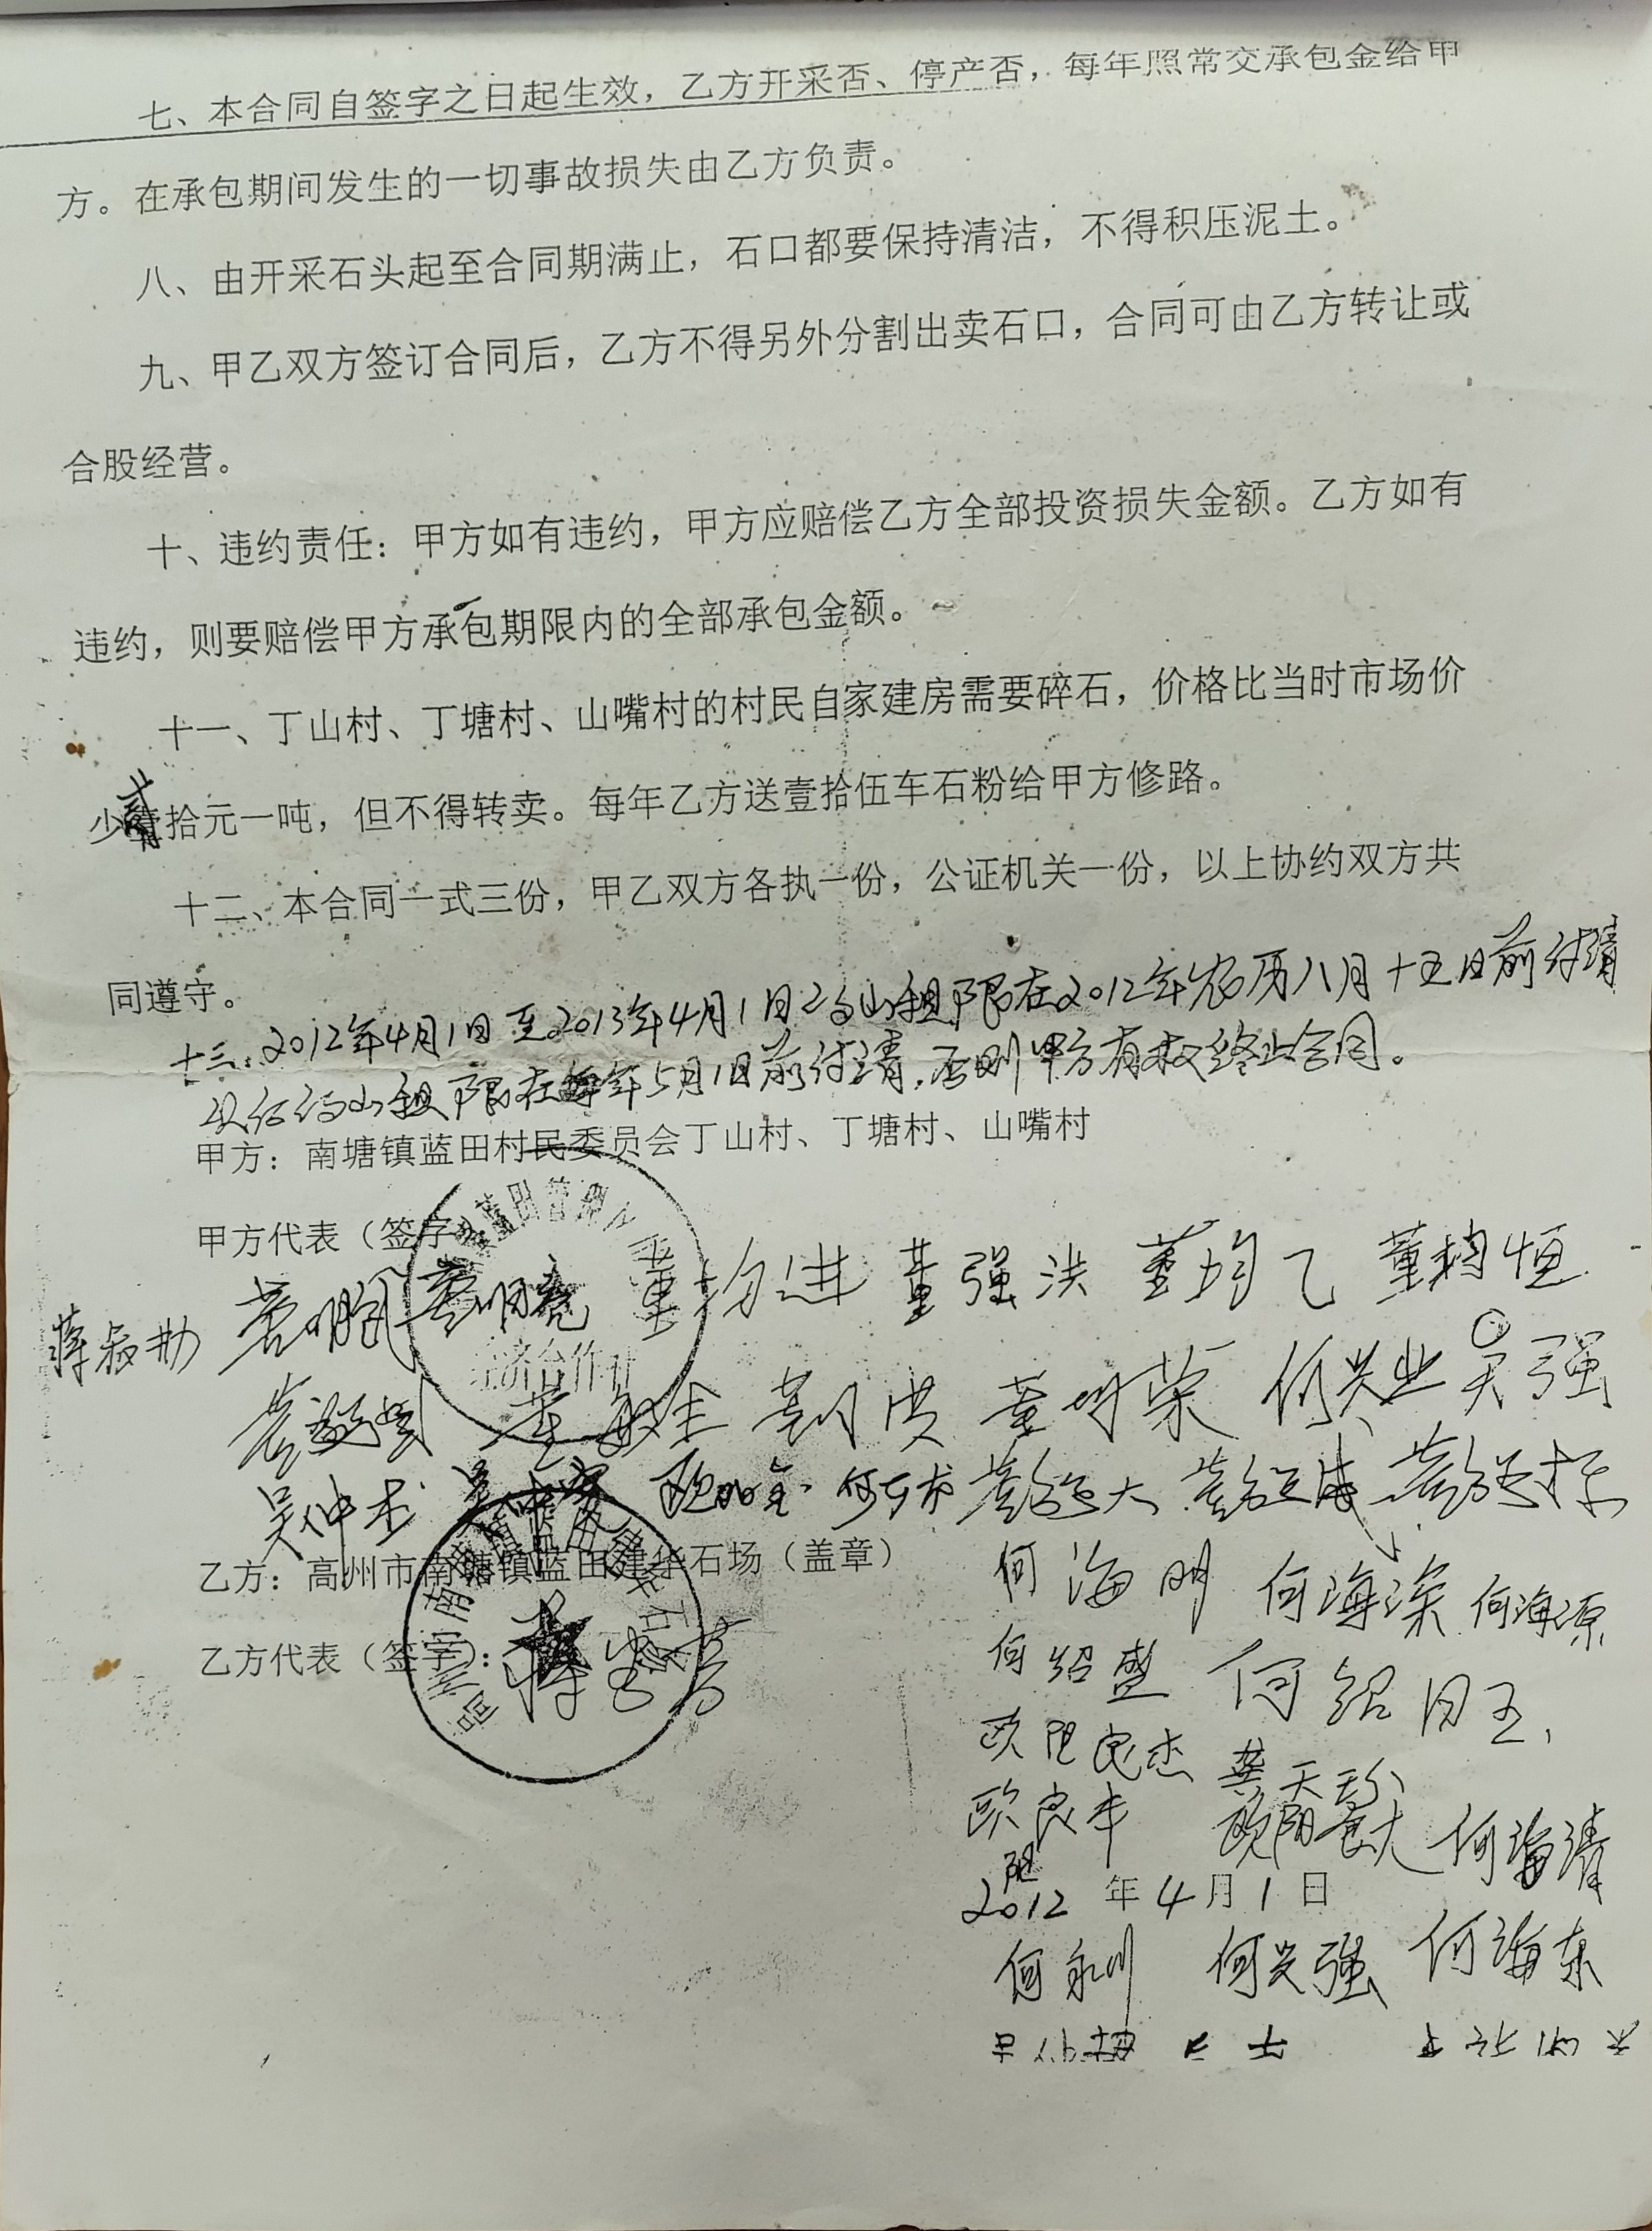 七、本合同自签字之日起生效，乙方开采否、停产否，每年照常交承包金给甲
方。在承包期间发生的一切事故损失由乙方负责。
八、由开采石头起至合同期满止，石口都要保持清洁，不得积压泥土。
九、甲乙双方签订合同后，乙方不得另外分割出卖石口，合同可由乙方转让或
合股经营。
十、违约责任：甲方如有违约，甲方应赔偿乙方全部投资损失金额。乙方如有
违约，则要赔偿甲方承包期限内的全部承包金额。
十一、丁山村、丁塘村、山嘴村的村民自家建房需要碎石，价格比当时市场价
少拾元一吨，但不得转卖。每年乙方送壹拾伍车石粉给甲方修路。
十二、本合同一式三份，甲乙双方各执一份，公证机关一份，以上协约双方共
同遵守。
十三、2012年4月1日至2013年4月1日山租限在2012年农历八月十五日前付清
山租限在每年5月1日前付清，否则甲方有权终止合同。
甲方：南塘镇蓝田村民委员会丁山村、丁塘村、山嘴村
甲方代表（签字）
董强洪 董均乙
经济合作社
董明荣 何兴业 吴强
吴仲
乙方：高州市南塘镇蓝田建华石场（盖章）
何海明 何海深 何海源
乙方代表（签字）：
何绍盛 何绍
欧阳良杰 龚天
欧阳良丰 欧阳 何海清
2012年4月1日
何永川 何兴强 何海东